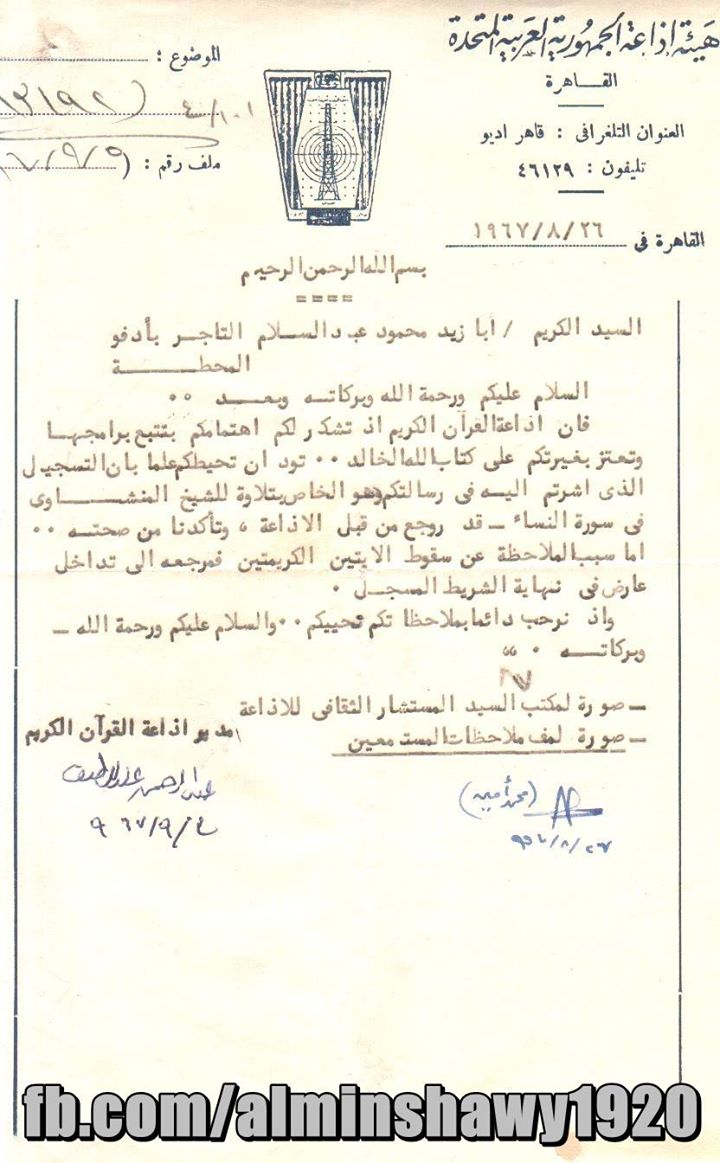 هيئة إذاعة الجمهورية العربية المتحدة
القاهرة
العنوان التلغرافى : قاهر اديو
تليفون : ٤٦١٢٩
الموضوع :
ملف رقم :
القاهرة فى ٢٦/٨/١٩٦٧
بسم الله الرحمن الرحيم
====
السيد الكريم / أبا زيد محمود عبد السلام التاجر بأدفو
المحطة
السلام عليكم ورحمة الله وبركاته وبعد ٠٠
فان اذاعة القرآن الكريم اذ تشكر لكم اهتمامكم بتتبع برامجها
وتعتز بغيرتكم على كتاب الله الخالد ٠٠ تود ان تحيطكم علما بان التسجيل
الذى اشرتم اليه فى رسالتكم وهو الخاص بتلاوة للشيخ المنشاوى
فى سورة النساء ـ قد روجع من قبل الاذاعة ، وتأكدنا من صحته ٠٠
اما سبب الملاحظة عن سقوط الايتين الكريمتين فمرجعه الى تداخل
عارض فى نهاية الشريط المسجل ٠
واذ نرحب دائما بملاحظاتكم تحييكم ٠٠ والسلام عليكم ورحمة الله ـ
وبركاته ٠ ،،
ـ صورة لمكتب السيد المستشار الثقافى للاذاعة
ـ صورة لملف ملاحظات المستمعين
مدير اذاعة القرآن الكريم
عبد الرحمن عبد اللطيف
٩٦٧/٩/٤
(محمد أمين)
fb.com/alminshawy1920